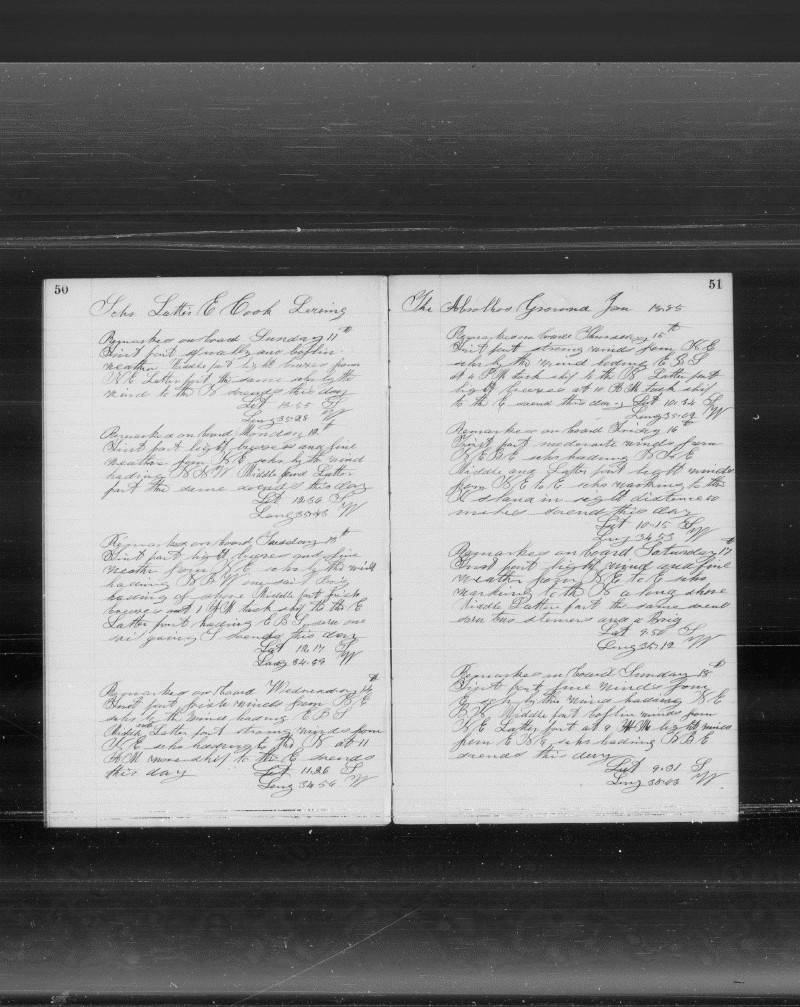 50
Schr Lottie E Cook Leveing
Remarkes on board Sunday 11th
First part squally and baflin
weather Middle part light breezes from
N E Latter part the same schr by the
wind to the N soends this day
Lat 13.55 S
Long 35.28 W
Remarkes on board Monday 12th
First part light breezes and fine
weather from N E schr by the wind
heading N N W Middle and Latter
part the same soends this day
Lat 12.36 S
Long 35.43 W
Remarkes on board Tuesday 13th
First part light breezes and fine
weather from N E schr by the wind
heading N B W one sail Brig
heading of shore Middle part fresh
breezes at 1 A M tack ship to the E
Latter part heading E B S seen one
sail going S soends this day
Lat 12.17 S
Long 34.59 W
Remarkes on board Wednesday 14th
First part fresh winds from N E
schr by the wind heading E B S
Middle and Latter part strong winds from
N E schr heading to the N at 11
A M wore ship to the E soends
this day Lat 11.26 S
Long 34.56 W
51
The Abrolhos Ground Jan 1885
Remarkes on board Thursday 15th
First part strong winds from N E
schr by the wind heading E B S
at 4 P M tack ship to the N Latter part
light breezes at 10 A M tack ship
to the E soend this day Lat 10.34 S
Long 35.09 W
Remarkes on board Friday 16th
First part moderate winds from
N E B E schr heading N to E
Middle and Latter part light winds
from N E to E schr working to the
N land in sight distence 20
miles soends this day
Lat 10.15 S
Long 34.53 W
Remarkes on board Saturday 17th
First part light wind and fine
weather from N E to E schr
working to the N a long shore
Middle Latter part the same seen
seen two steamers and a Brig
Lat 9.50 S
Long 35.12 W
Remarkes on board Sunday 18th
First part fine winds from
E schr by the wind heading N E
B N Middle part baflin winds from
N E Latter part at 9 A M light winds
from E N E schr heading N B E
soends this day
Lat 9.31 S
Long 35.03 W